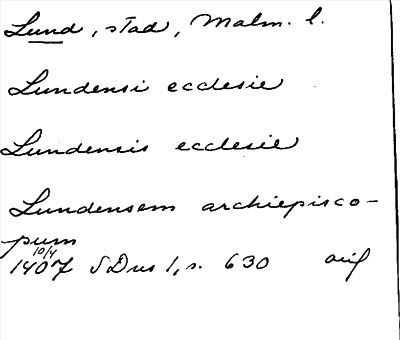 Lund, stad, Malm. l.
Lundensi ecclesie
Lundensis ecclesie
Lundensem archiepisco-
pum
10/4
1407 SDns 1, s. 630